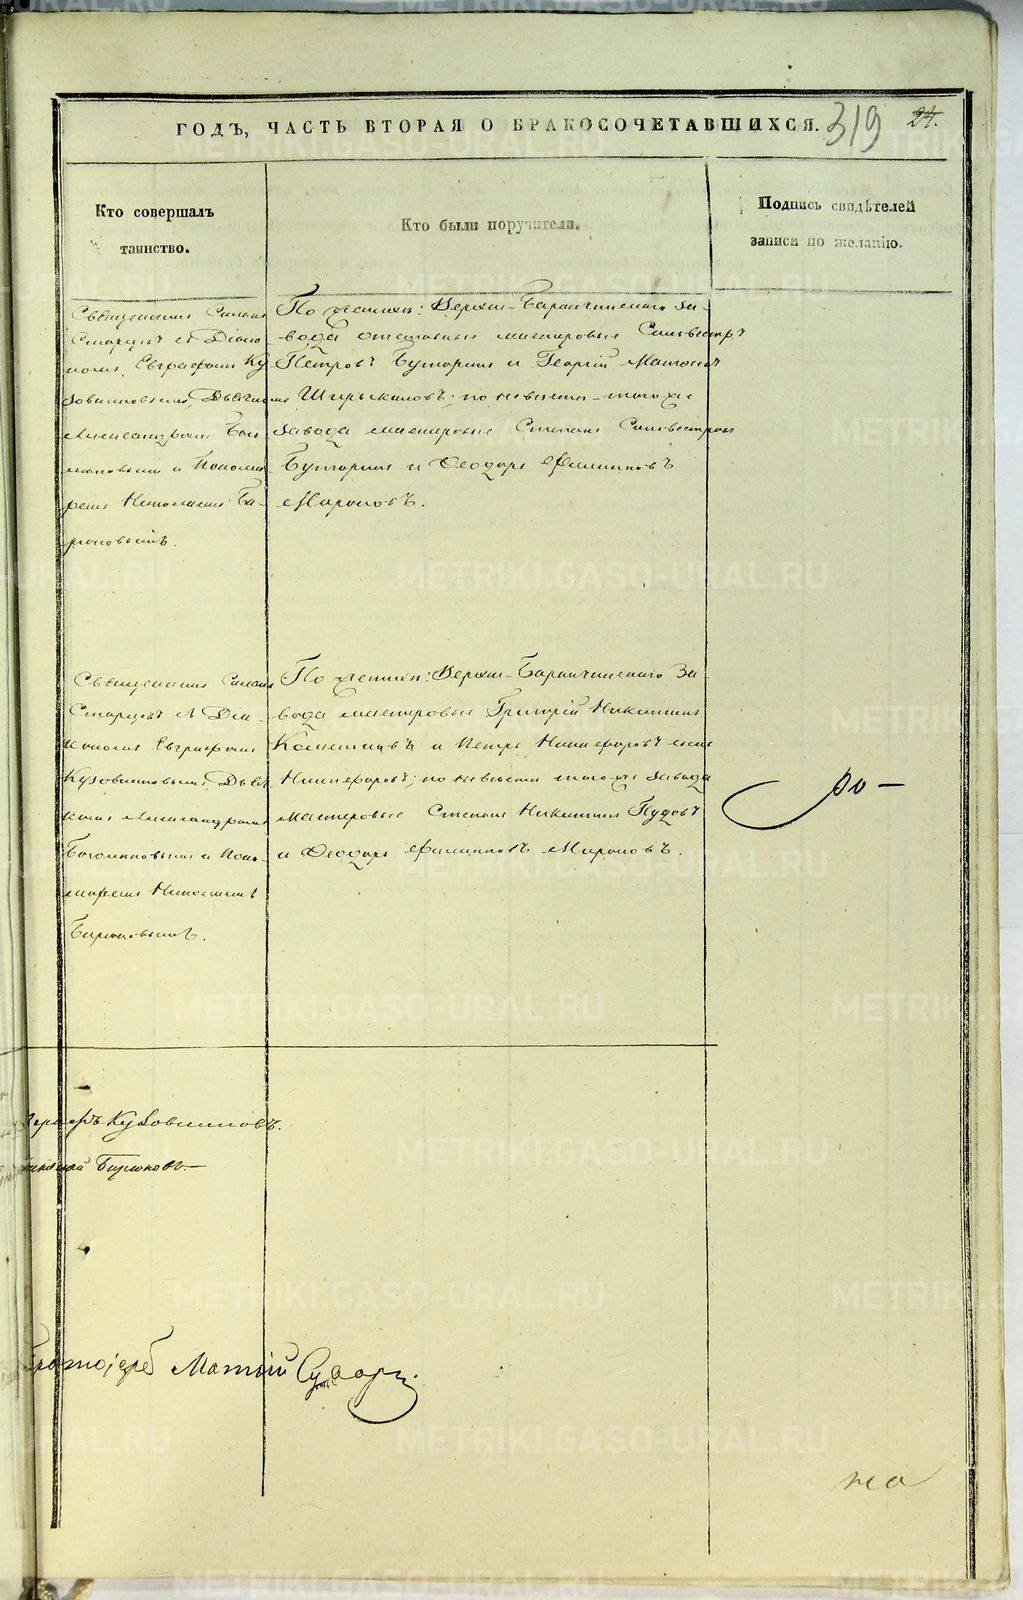 ГОДЪ, ЧАСТЬ ВТОРАЯ О БРАКОСОЧЕТАВШИХСЯ.
319
24.
Кто совершалъ
таинство.
Кто были поручители.
Подпись свидѣтелей
записи по желанію.
Священникъ
Старцевъ и Діако
номъ Евграфомъ Ку
зовниковымъ, Дьячкомъ
Александромъ Бои
мановымъ и Понома
ремъ Николаемъ Би
рюковымъ.
По женихѣ: Верхне-Баранчинскаго За-
вода отставные мастеровые Сильвестръ
Петровъ Бушаринъ и Георгій
по невѣстѣ - того же
Завода мастеровые Степанъ Сильвестровъ
Бушаринъ и Ѳеодоръ Филиповъ
Мироновъ.
Священникъ
Старцевъ и Діа-
кономъ Евграфомъ
Кузовниковымъ, Дьяч
комъ Александромъ
и Поно-
маремъ Николаемъ
Бирюковымъ.
По женихѣ: Верхне-Баранчинскаго За-
вода мастеровые Григорій Никитинъ
и Петръ Никифоровъ
Никифоровъ; по невѣстѣ того же Завода
мастеровые Степанъ Никитинъ Пудовъ
и Ѳеодоръ Филиповъ Мироновъ.
Кузовниковъ.
Бирюковъ.
Матѳій
METRIKI.GASO-URAL.RU